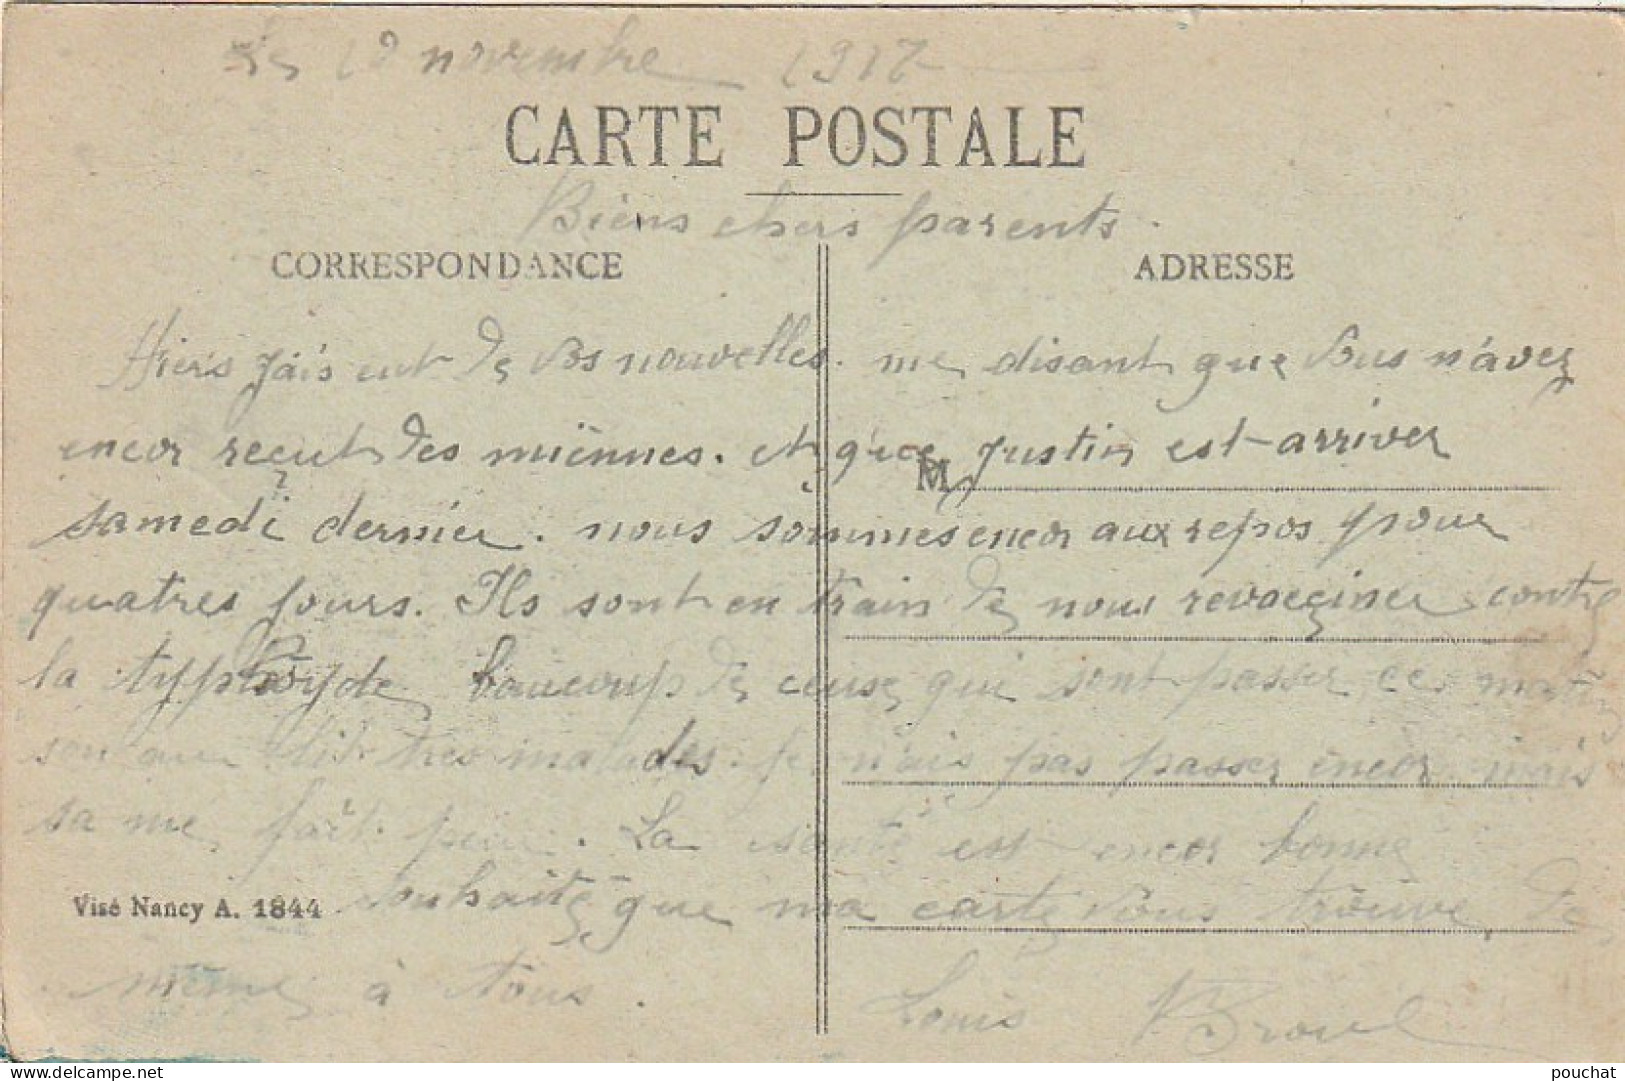 Le 10 novembre 1917
CARTE POSTALE
Biens chers parents.
CORRESPONDANCE ADRESSE
Hiers j'ais eut de vos nouvelles. me disant que vous n'avez
encor reçut des miènnes. et que Justin est arriver
M
samedi dernier. nous sommes encor aux repos pour
quatres jours. Ils sont en train de nous revacciner contre
la typhoyde beaucoup de ceuse qui sont passer ce matin
son aux lit tres malades. je n'ais pas passer encor mais
sa me fait peur. La santé est encor bonne
Visé Nancy A. 1844 souhaite que ma carte vous trouve de
même à tous. Louis
pouchat